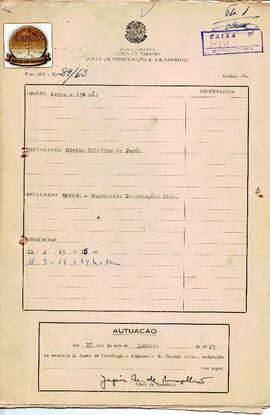 fls. 1
CAIXA Nº
PODER JUDICIÁRIO
JUSTIÇA DO TRABALHO
JUNTA DE CONCILIAÇÃO E JULGAMENTO
Proc. JCJ - N.º 29/63
Goiânia - Go.
OBJETO
Aviso e 13º sº:
OBSERVAÇÕES
RECLAMANTE
Divino Umbelino de Jesús
RECLAMADO
Enrich - Engenharia Construções Ltda.
AUDIÊNCIAS
11 2 63 15
AUTUAÇÃO
Aos 23 dias do mês de janeiro de 1963
na secretaria da Junta de Conciliação e Julgamento de Goiânia autuo a reclamação
que segue.
Chefe da Secretaria